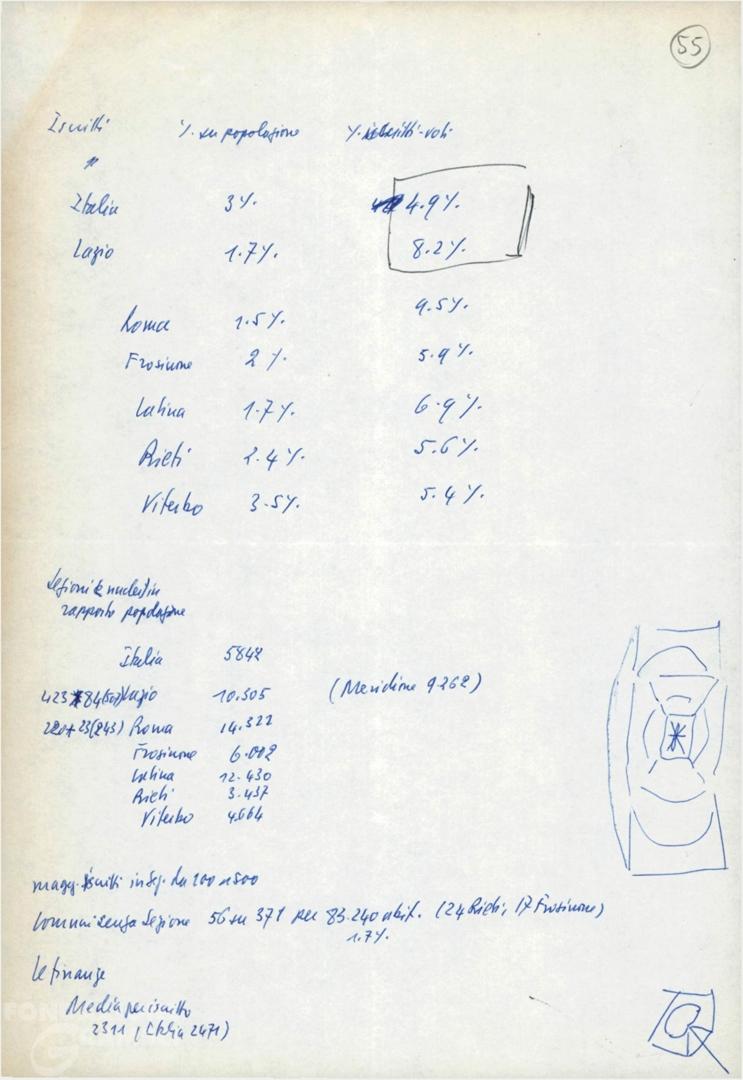 55
Iscritti % su popolazione % iscritti-voti
"
Italia 3% 4.9%
Lazio 1.7% 8.2%
Roma 1.5% 9.5%
Frosinone 2% 5.9%
Latina 1.7% 6.9%
Rieti 2.4% 5.6%
Viterbo 3.5% 5.4%
Sezioni e nuclei in
rapporto popolazione
Italia 5842
423 + 84 Lazio 10.505 (Meridione 9262)
220+23(243) Roma 14.322
Frosinone 6.002
Latina 12.430
Rieti 3.437
Viterbo 4664
magg. iscritti in sez. da 200 a 500
Comuni senza Sezione 56 su 371 per 83.240 abit. (24 Rieti, 17 Frosinone)
1.7%
Le finanze
Media per iscritto
2311 (Italia 2471)